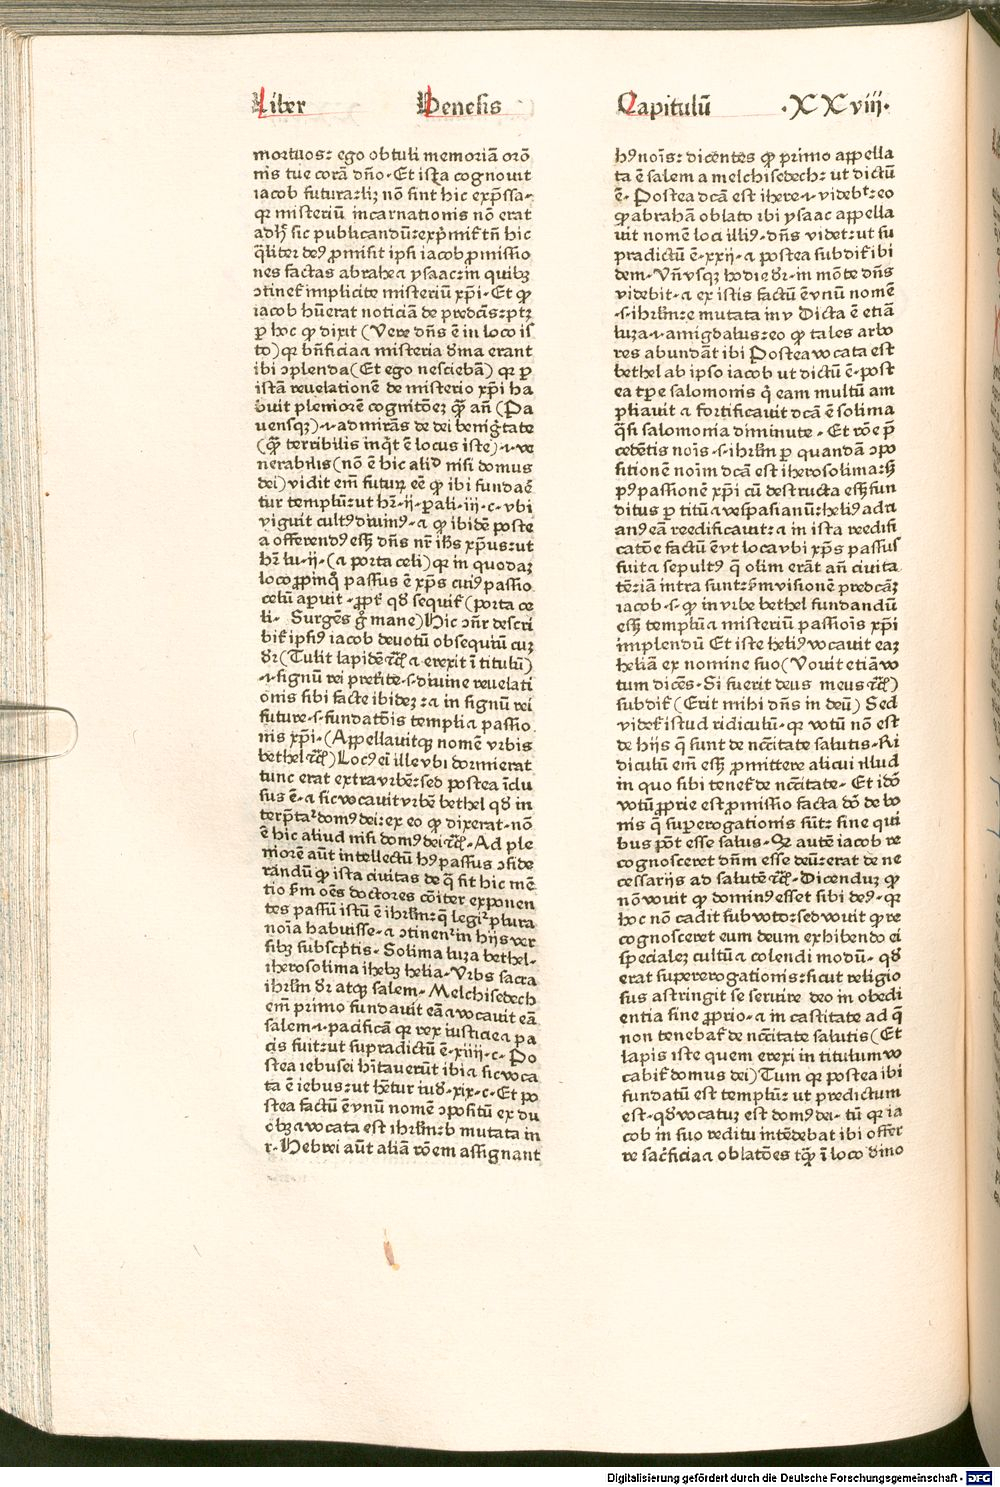 Liber Genesis Capitulū ·XXviij·
mortuos: ego obtuli memoriā orō
nis tue corā dño· Et ista cognouit
iacob futura: lꝫ nō sint hic exp̄ssa·
qꝛ misteriū incarnationis nō erat
adhꝰ sic publicandū: exp̄mit̉ tñ hic
qͥliter deꝰ ꝓmisit ipsi iacob ꝓmissio
nes factas abrahe ⁊ ysaac: in quibꝫ
ↄtinet̉ implicite misteriū xp̄i· Et qꝙ
iacob hūerat noticiā de predc̄is: ptꝫ
ꝑ hoc ꝙ dixit (Vere dñs ē in loco is
to) qꝛ bñficia ⁊ misteria diuina erant
ibi ↄplenda (Et ego nesciebā) qꝛ ꝑ
istā reuelationē de misterio xp̄i ha
buit pleniorē cognitōeꝫ qͣꝫ añ (Pa
uensqꝫ) ·⁊· admirās de dei benignͥtate
(qͣꝫ terribilis inqͥt ē locus iste) ·⁊· ve
nerabilis (nō ē hic aliđ nisi domus
dei) vidit em̄ futuꝝ eē ꝙ ibi fundaē
tur templū: ut hꝛ̄ ·ij· ꝑali· iij· c· vbi
viguit cultꝰ diuinꝰ· ⁊ ꝙ ibidē poste
a offerendꝰ esꝫ dñs nr̄ ih̄s xp̄us: ut
hꝛ̄ lu· ij· (⁊ porta celi) qꝛ in quodaꝫ
loco ꝓpinqͦ passus ē xp̄s cuiꝰ passio
celū aꝑuit· ꝓpt̉ qđ sequit̉ (porta ce
li· Surgēs g̊ mane) Hic ↄñr descri
bit̉ ipsiꝰ iacob deuotū obsequiū cuꝫ
dr̄ (Tulit lapidē ⁊c̄ ⁊ erexit ī titulū)
·⁊· signū rei preterite· s· diuine reuelati
onis sibi facte ibideꝫ: ⁊ in signū rei
future· s· fundatōis templi ⁊ passio
nis xp̄i· (Appellauitqꝫ nomē vrbis
bethel ⁊c̄) Locꝰ em̄ ille vbi dormierat
tunc erat extra vrbē: sed postea īclu
sus ē· ⁊ sic vocauit vrbē bethel qđ in
terp̄tat̉ domꝰ dei: ex eo ꝙ dixerat· nō
ē hic aliud nisi domꝰ dei ⁊c̄· Ad ple
niorē aūt intellectū hꝰ passus ↄside
randū ꝙ ista ciuitas de qͣ fit hic mē
tio s̄m oēs doctores cōiter exponen
tes passū istū ē ihrl̄m: qͣ legit̉ plura
noīa habuisse· ⁊ ↄtinent̉ in hijs ver
sibꝫ subscp̄tis· Solima luza bethel·
iherosolima ihebꝫ helia· Vrbs sacra
ihrl̄m dr̄ atqꝫ salem· Melchisedech
em̄ primo fundauit eā ⁊ vocauit eā
salem ·⁊· pacificā qꝛ rex iusticie ⁊ pa
cis fuit: ut supradictū ē· xiiij· c· Po
stea iebusei hītauerūt ibi ⁊ sic voca
ta ē iebus: ut hētur iud̛· xix· c· Et po
stea factū ē vnū nomē ↄpositū ex du
obꝫ ⁊ vocata est ihrl̄m: b mutata in
r· Hebrei aūt aliā rōem assignant
hꝰ noīs: dicentes ꝙ primo appella
ta ē salem a melchisedech: ut dictū
ē· Postea dc̄a est ihere ·⁊· videbt̉: eo
ꝙ abrahā oblato ibi ysaac appella
uit nomē loci illiꝰ· dñs videt: ut su
pradictū ē· xxij· ⁊ postea subdit̉ ibi
dem· Vñ vsqꝫ hodie dr̄· in mōte dñs
videbit· ⁊ ex istis factū ē vnū nomē
·s· ihrl̄m: e mutata in v Dicta ē etiā
luza ·⁊· amigdalus: eo ꝙ tales arbo
res abundāt ibi Postea vocata est
bethel ab ipso iacob ut dictū ē· post
ea tꝑe salomonis qͥ eam multū am
pliauit ⁊ fortificauit dc̄a ē solima
qͣsi salomonia diminute· Et rōe p̄
cedētis noīs· s· ihrl̄m ꝑ quandā ↄpo
sitionē noīm dc̄a est iherosolima: sꝫ
pꝰ passionē xp̄i cū destructa esꝫ fun
ditus ꝑ titū ⁊ vespasianū: heliꝰ adri
anꝰ eā reedificauit: ⁊ in ista reedifi
catōe factū ē vt loca vbi xp̄s passus
fuit ⁊ sepultꝰ qͣ olim erāt añ ciuita
tē: iā intra sunt: s̄m visionē predcāꝫ
iacob· s· ꝙ in vrbe bethel fundandū
esꝫ templū ⁊ misteriū passiois xp̄i
implendū Et iste heliꝰ vocauit eaꝫ
heliā ex nomine suo (Vouit etiā vo
tum dicēs· Si fuerit deus meus ⁊c̄)
subdit̉ (Erit mihi dñs in deū) Sed
videt̉ istud ridiculū· qꝛ votū nō est
de hijs qͣ sunt de nc̄citate salutis· Ri
diculū em̄ esꝫ ꝓmittere alicui illud
in quo sibi tenet̉ de nc̄citate· Et idō
votū ꝓprie est ꝓmissio facta dō de bo
nis qͣ suꝑerogationis sūt: sine qui
bus pōt esse salus· Sꝫ autē iacob re
cognosceret dñm esse deū: erat de ne
cessarijs ad salutē ⁊c̄· Dicenduꝫ ꝙ
nō vouit ꝙ dominꝰ esset sibi deꝰ· qꝛ
hoc nō cadit sub voto: sed vouit ꝙ re
cognosceret eum deum exhibendo ei
specialeꝫ cultū ⁊ colendi modū· qđ
erat supererogationis: sicut religio
sus astringit se seruire deo in obedi
entia sine ꝓprio· ⁊ in castitate ad qͣ
non tenebat̉ de nc̄citate salutis (Et
lapis iste quem erexi in titulum vo
cabit̉ domus dei) Tum qꝛ postea ibi
fundatū est templū: ut predictum
est· qđ vocatuꝫ est domꝰ dei· tū qꝛ ia
cob in suo reditu intēdebat ibi offer
re sac̄ficia ⁊ oblatōes tqͣꝫ ī loco diuino
Digitalisierung gefördert durch die Deutsche Forschungsgemeinschaft - DFG